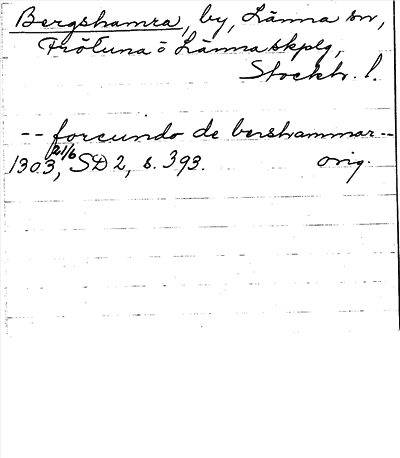 Bergshamra, by, Länna sn,
Frötuna o Länna skplg,
Stockh. l.
-- forcundo de bershammar --
1303 21/6, SD 2, s. 393. orig.